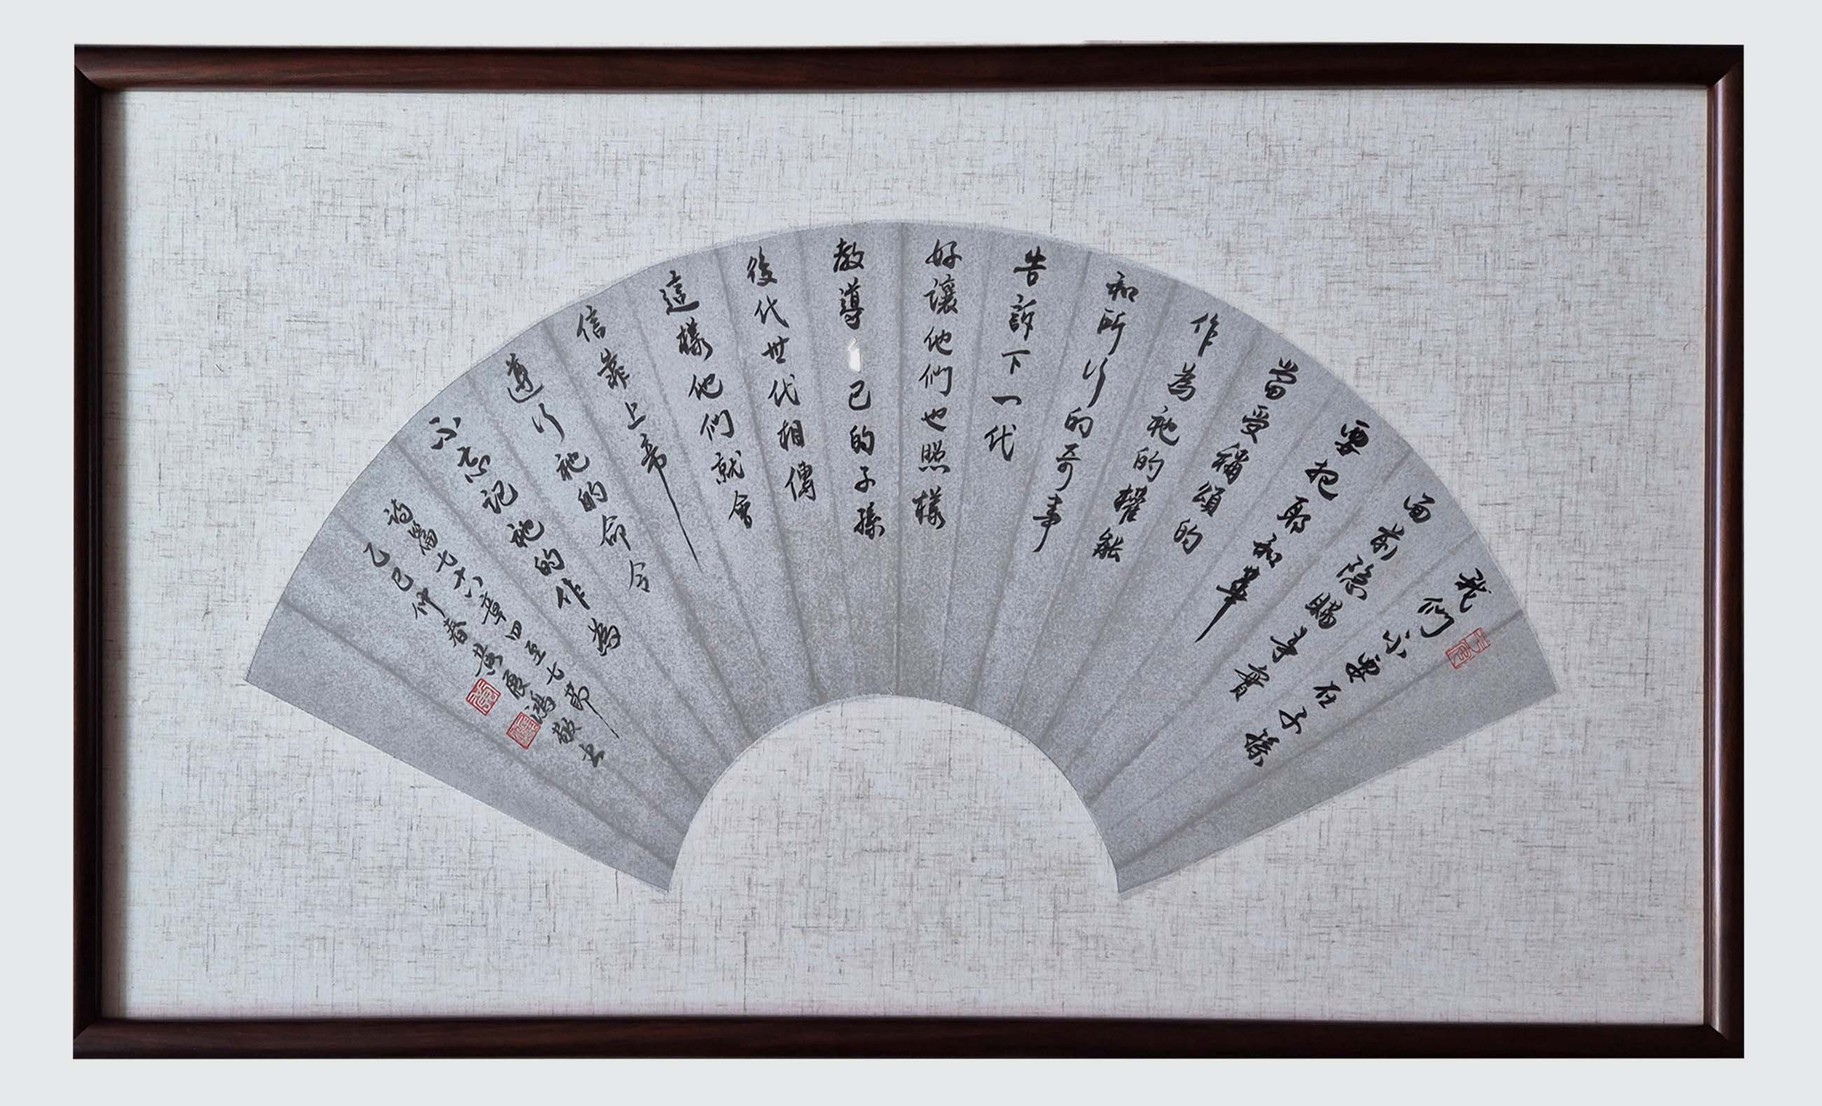 我們不要在子孫
面前隐瞞事實
要把耶和華
當受稱頌的
作為祂的權能
和所行的奇事
告訴下一代
好讓他們也照樣
教導己的子孫
後代世代相傳
這樣他們就會
信靠上帝
遵行祂的命令
不忘記祂的作為
詩篇七十八章四至七節
乙巳仲春黃鴻敬書